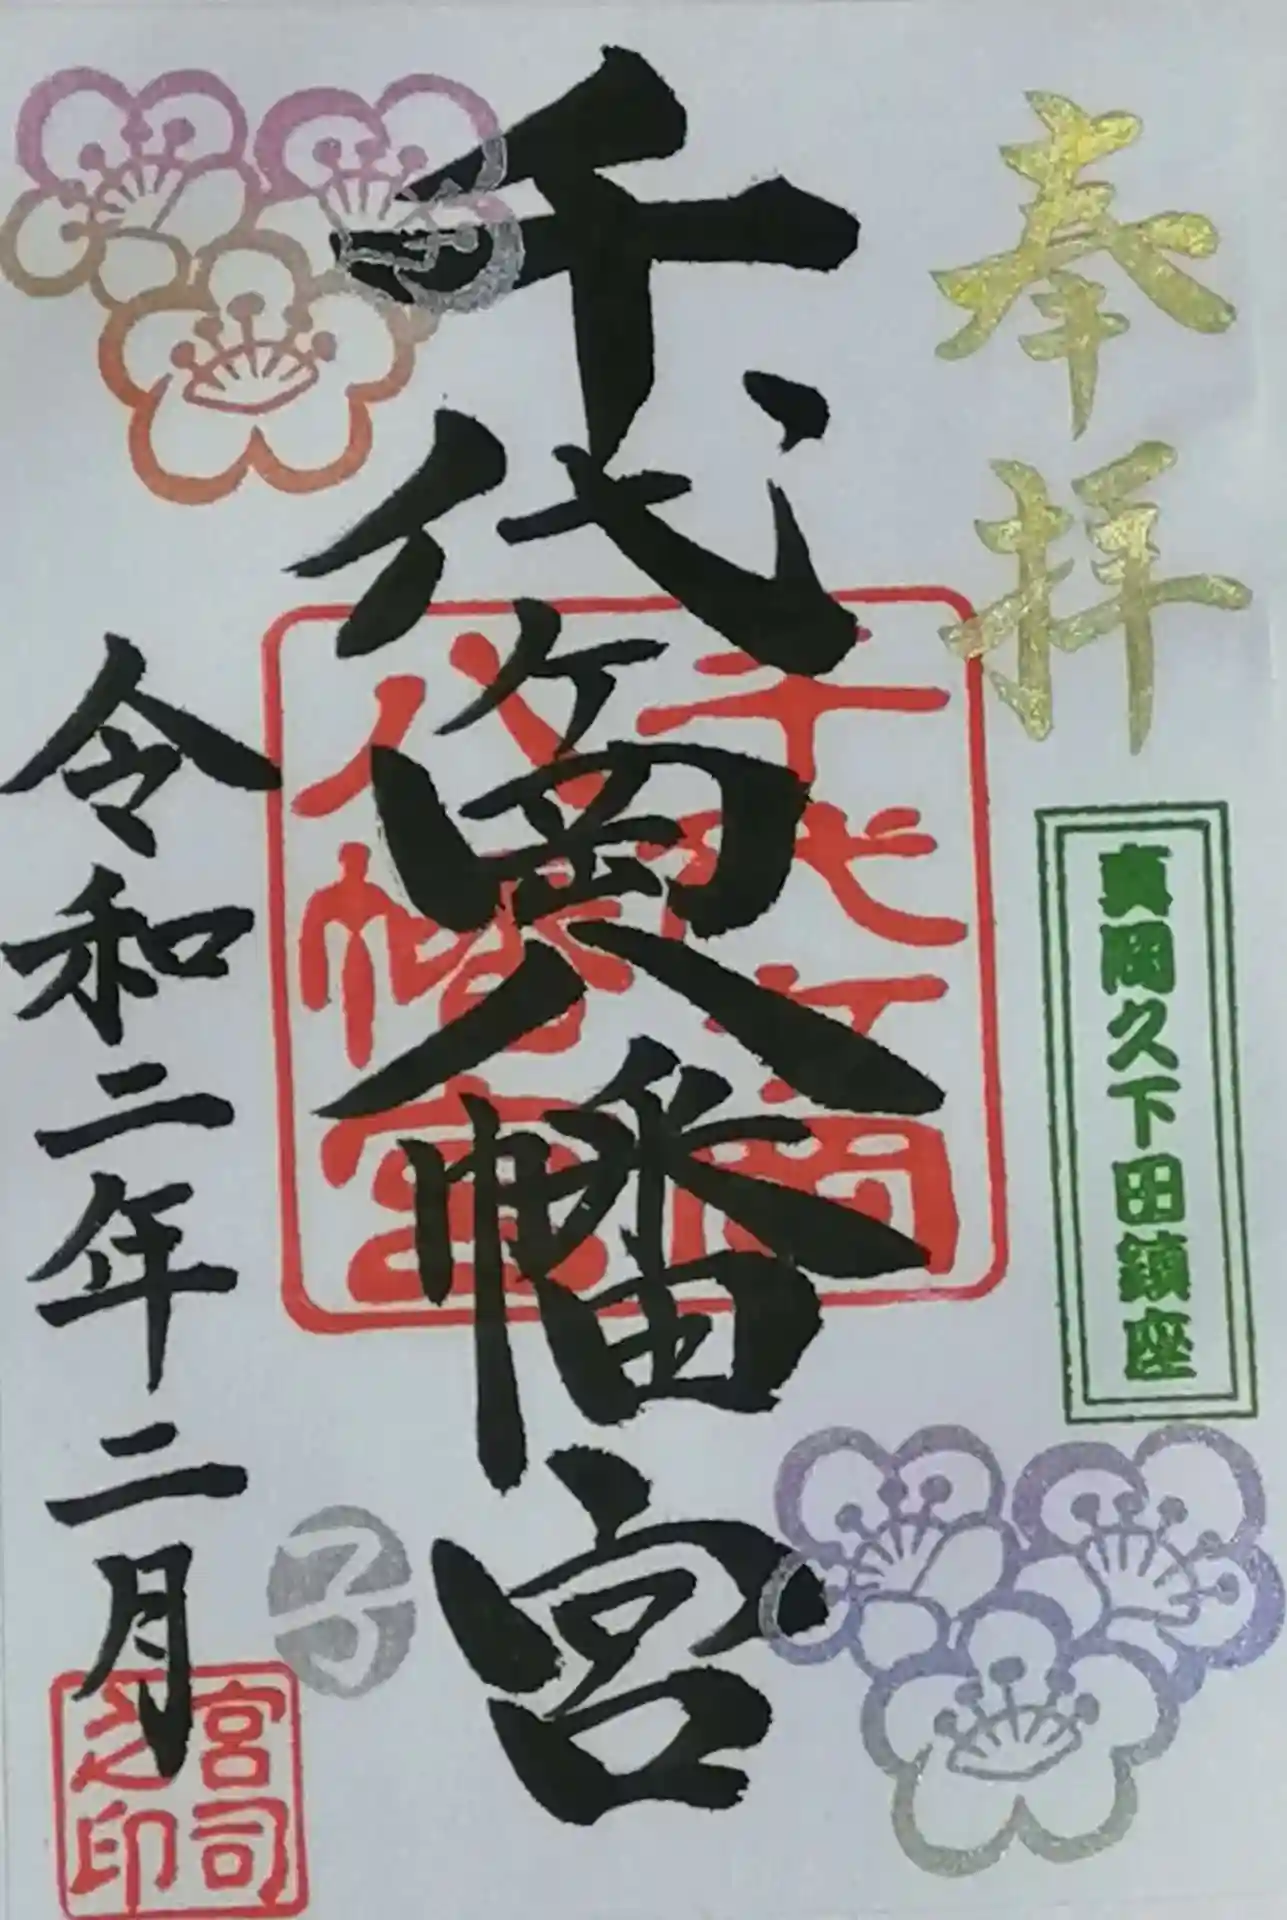 奉拝
真岡久下田鎮座
千代ヶ岡八幡宮
千代ヶ岡
八幡宮
令和二年二月
子
宮司
之印